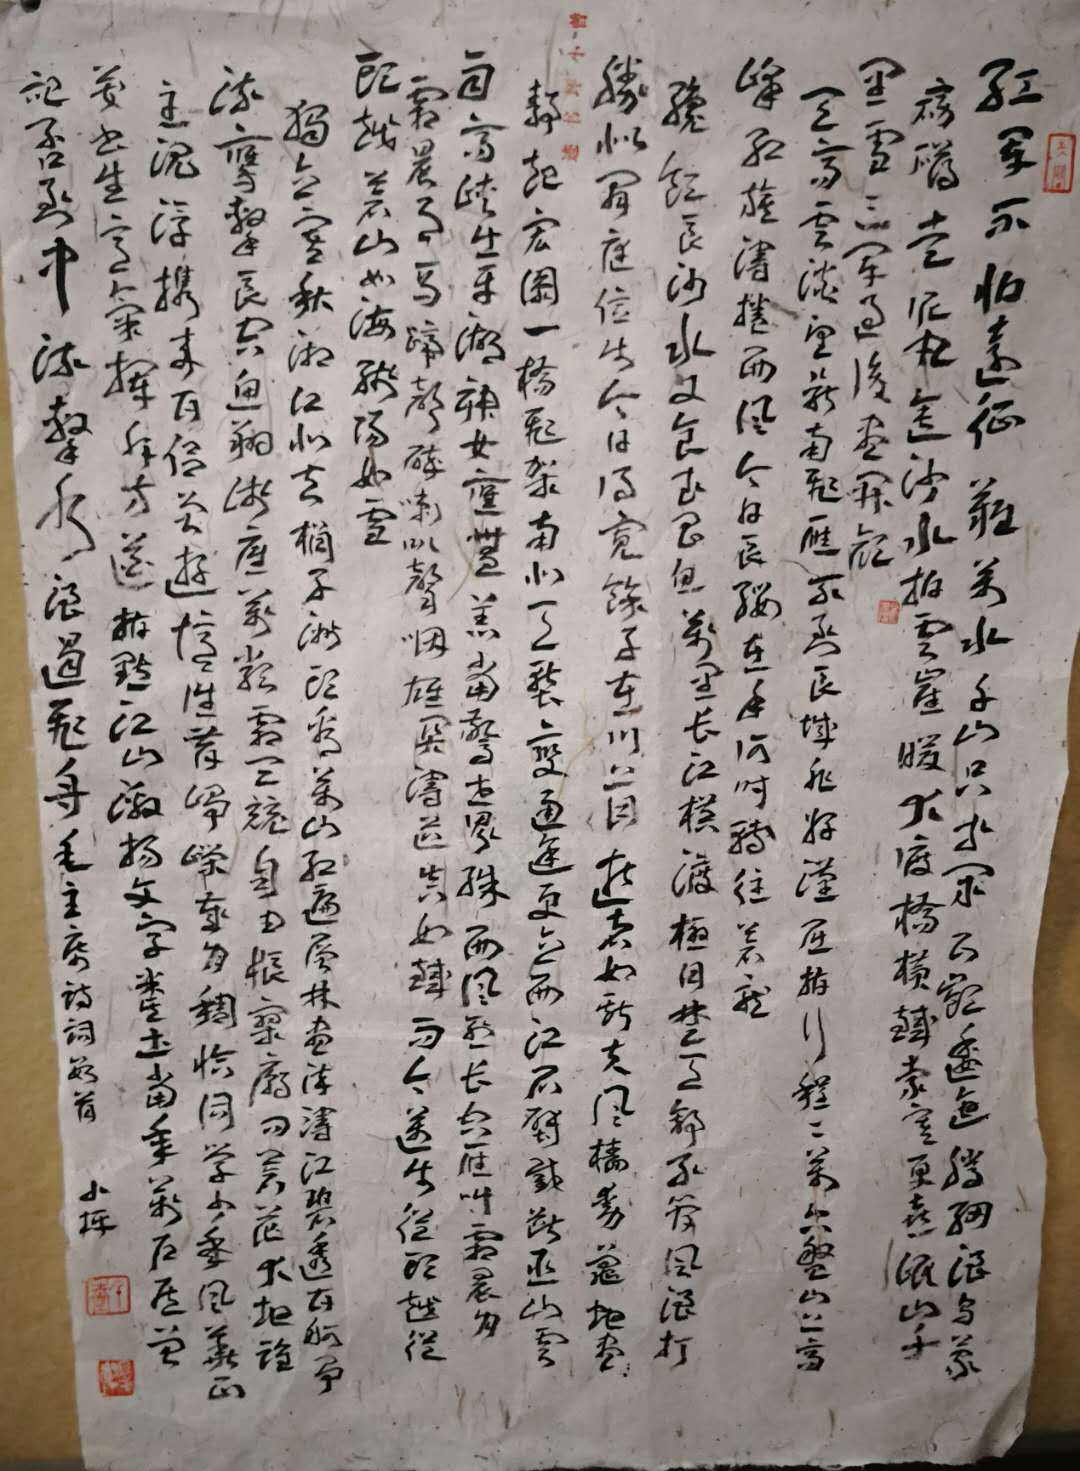 红军不怕远征难万水千山只等闲五岭逶迤腾细浪乌蒙
磅礴走泥丸金沙水拍云崖暖大渡桥横铁索寒更喜岷山千
里雪三军过后尽开颜
天高云淡望断南飞雁不到长城非好汉屈指行程二万六盘山上高
峰红旗漫卷西风今日长缨在手何时缚住苍龙
才饮长沙水又食武昌鱼万里长江横渡极目楚天舒不管风浪打
胜似闲庭信步今日得宽余子在川上曰逝者如斯夫风樯动龟蛇
静起宏图一桥飞架南北天堑变通途更立西江石壁截断巫山云
雨高峡出平湖神女应无恙当惊世界殊西风烈长空雁叫霜晨月
霜晨月马蹄声碎喇叭声咽雄关漫道真如铁而今迈步从头越从
头越苍山如海残阳如血
独立寒秋湘江北去橘子洲头看万山红遍层林尽染漫江碧透百舸争
流鹰击长空鱼翔浅底万类霜天竞自由怅寥廓问苍茫大地谁
主沉浮携来百侣曾游忆往昔峥嵘岁月稠恰同学少年风华正
茂书生意气挥斥方遒指点江山激扬文字粪土当年万户侯曾
记否到中流击水浪遏飞舟毛主席诗词数首
小挥